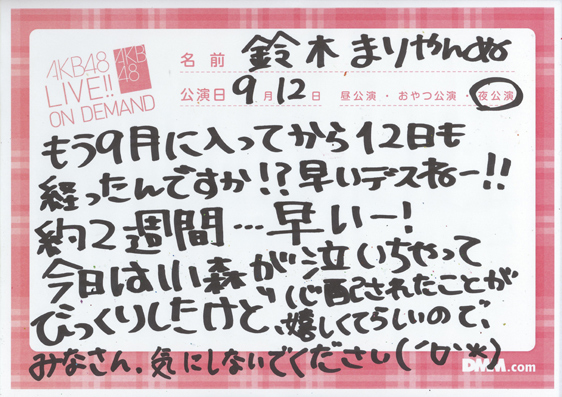 AKB48
LIVE!!
ON DEMAND
AKB
48
名前 鈴木まりやんぬ
公演日 9月12日 昼公演・おやつ公演・夜公演
もう9月に入ってから12日も
経ったんですか!?早いデスねー!!
約2週間…早いー!
今日は小森が泣いちゃって
びっくりしたけど、心配されたことが
嬉しくてらしいので、
みなさん、気にしないでくださし(´▽`*)
DMM.com